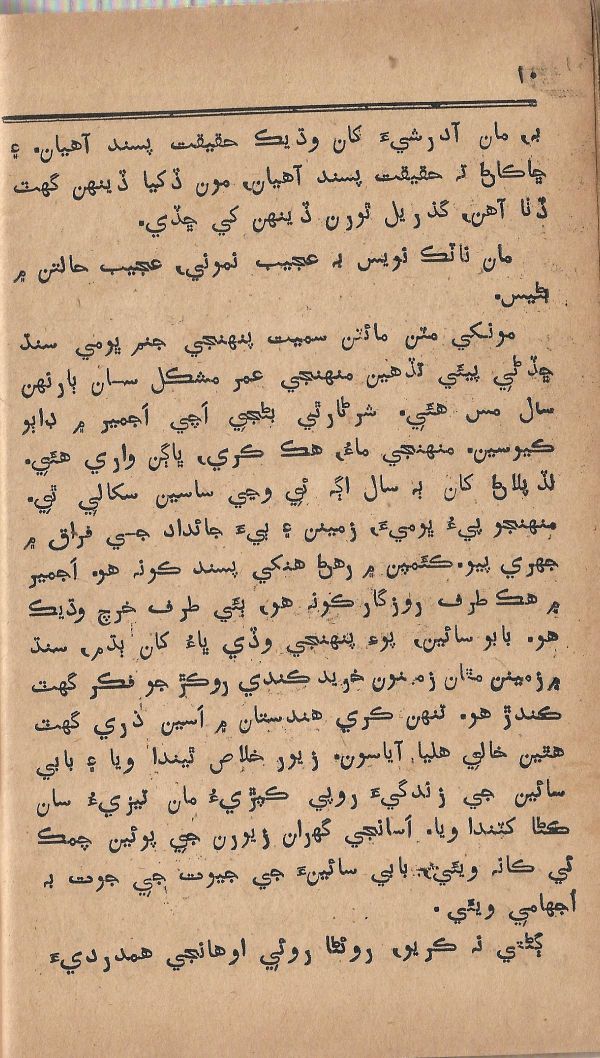 ١٠
به، مان آدرشيءَ کان وڌيڪ حقيقت پسند آهيان. ۽
ڇاڪاڻ ته حقيقت پسند آهيان، مون ڏکيا ڏينهن گهٽ
ڏٺا آهن، گذريل ٿورن ڏينهن کي ڇڏي.
مان ناٽڪ نويس به عجيب نموني، عجيب حالتن ۾
بڻيس.
مونکي مٽن مائٽن سميت پنهنجي جنم ڀومي سنڌ
ڇڏڻي پيئي تڏهين منهنجي عمر مشڪل سان ٻارنهن
سال مس هئي. شرڻارٿي بڻجي اَچي اَجمير ۾ دٻاو
ڪيوسين. منهنجي ماءُ، هڪ ڪري، ڀاڳن واري هئي.
لڏ پلاڻ کان ٻه سال اڳ ئي وڃي ساسين سڪالي ٿي.
منهنجو پيءُ ڀوميءَ، زمينن ۽ ٻيءَ جائداد جي فراق ۾
جهري پيو. ڪئمپن ۾ رهڻ هنکي پسند ڪونه هو. اَجمير
۾ هڪ طرف روزگار ڪونه هو، ٻئي طرف خرچ وڌيڪ
هو. بابو سائين، پوءِ پنهنجي وڏي ڀاءُ کان ٻڌم، سنڌ
۾ زمينن مٿان زمنون خريد ڪندي روڪڙ جو فڪر گهٽ
ڪندڙ هو. تنهن ڪري هندستان ۾ اَسين ذري گهٽ
هٿين خالي هليا آياسون. زيور خلاص ٿيندا ويا ۽ بابي
سائين جي زندگيءَ روپي ڪپڙيءُ مان تيزيءُ سان
ڪڻا کٽندا ويا. اَسانجي گهران زيورن جي پوئين چمڪ
ئي کانه ويئي، بابي سائينءَ جي جيوت جي جوت به
اُجهامي ويئي.
ڳڻتي نه ڪريو، روئڻا روئي اوهانجي همدرديءَ